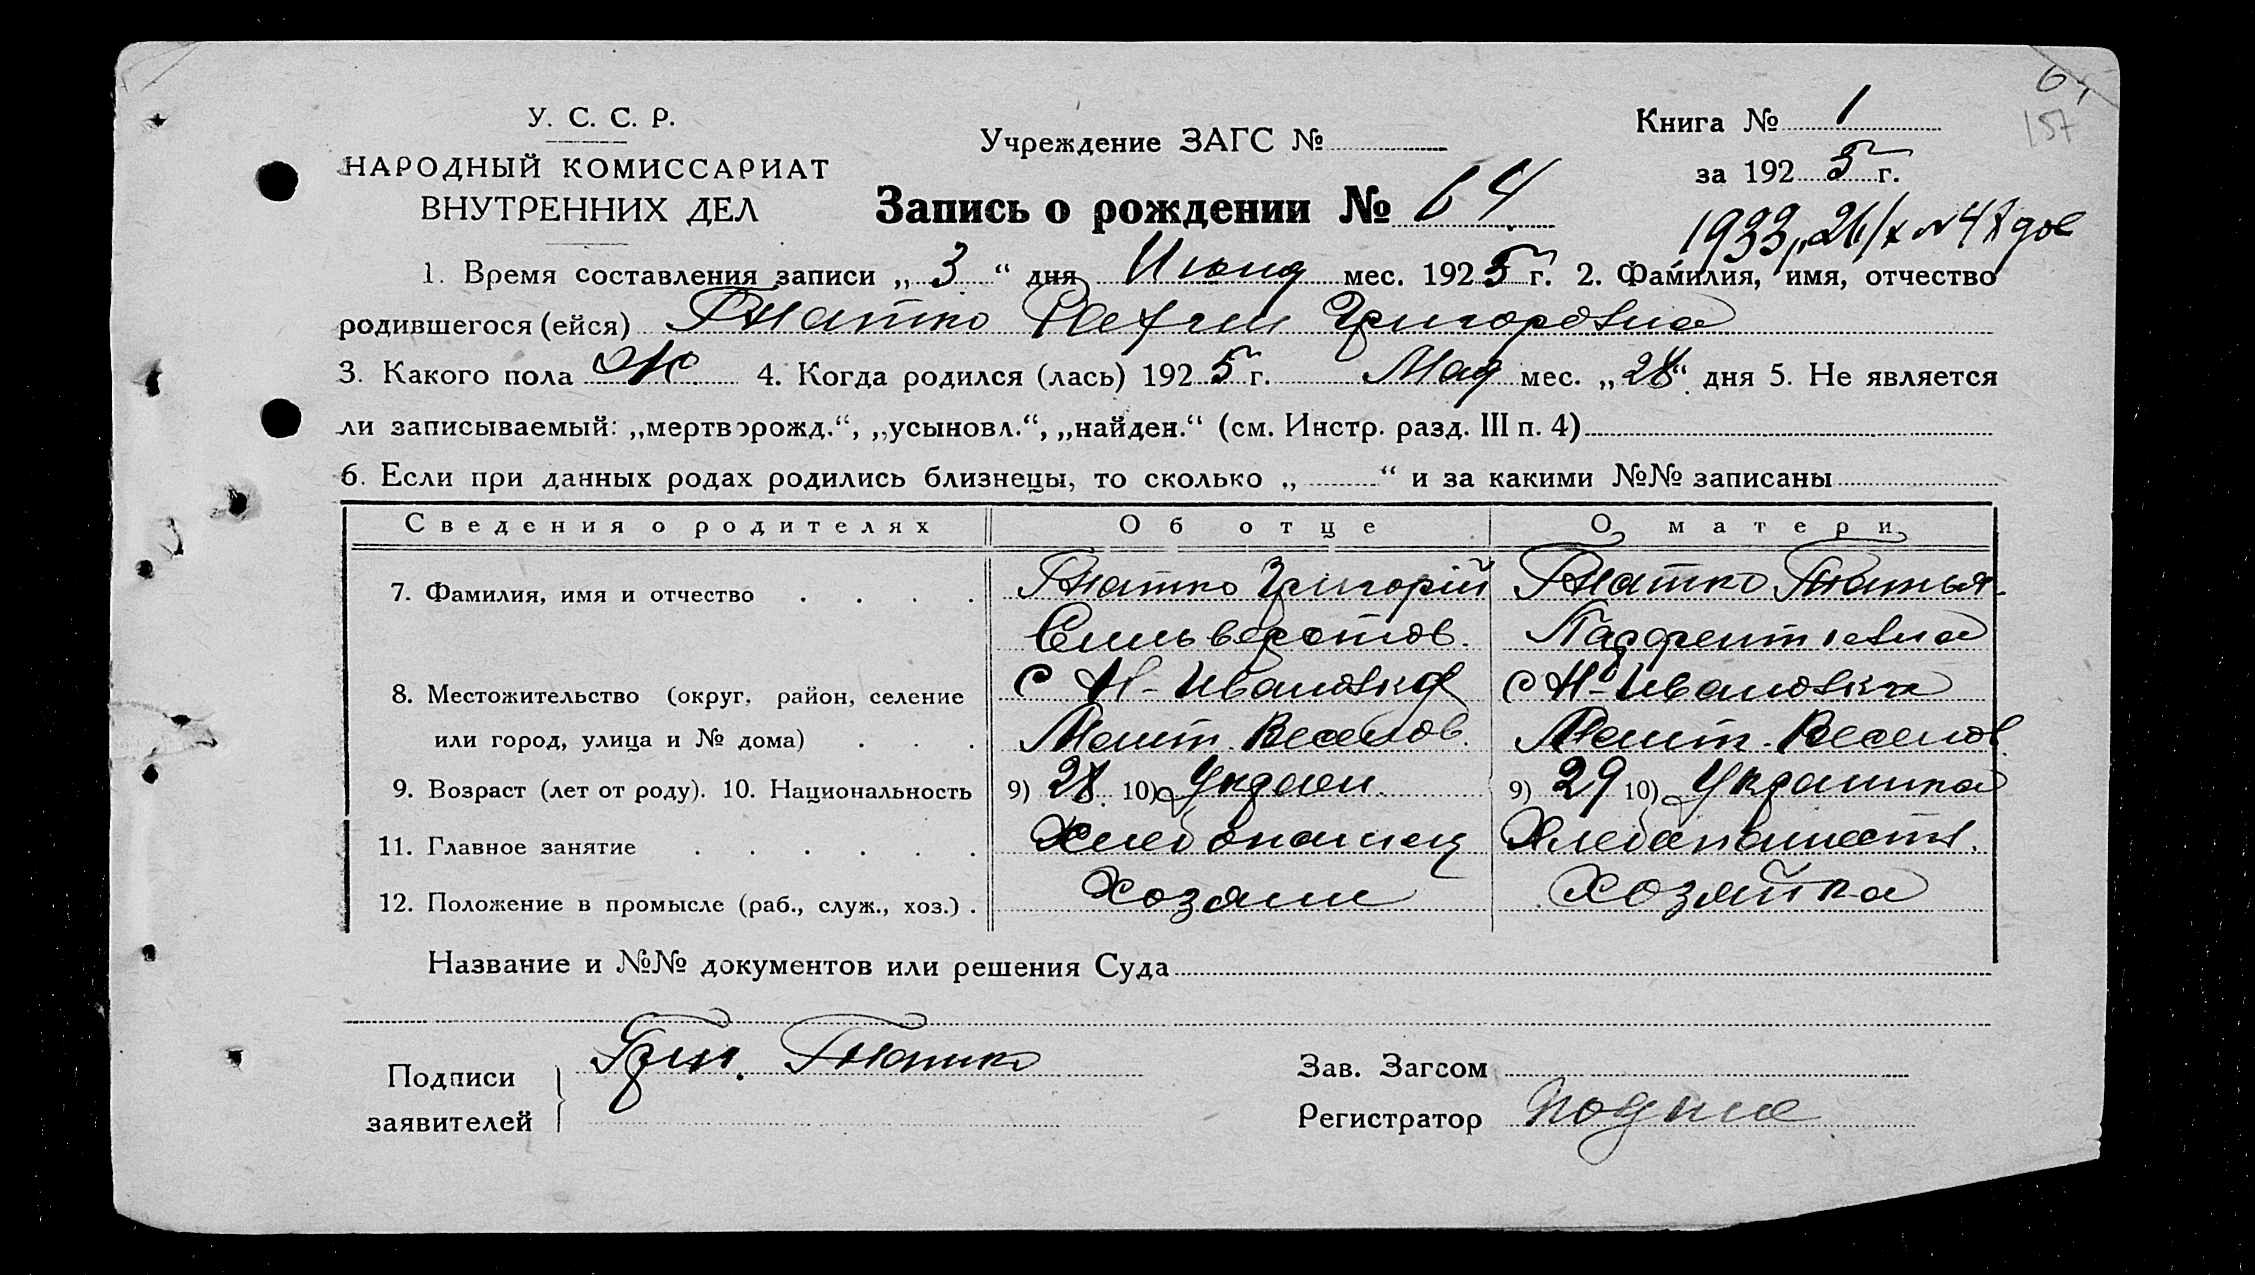 У. С. С. Р.
НАРОДНЫЙ КОМИССАРИАТ
ВНУТРЕННИХ ДЕЛ
Учреждение ЗАГС №
Книга № 1
за 1925 г.
157
Запись о рождении № 64
1933, 26/X № 48
1. Время составления записи „3“ дня Июня мес. 1925 г. 2. Фамилия, имя, отчество
родившегося (ейся) Гнатко Григоровна
3. Какого пола Ж 4. Когда родился (лась) 1925 г. Мая мес. „28“ дня 5. Не является
ли записываемый: „мертворожд.“, „усыновл.“, „найден.“ (см. Инстр. разд. III п. 4)
6. Если при данных родах родились близнецы, то сколько „ “ и за какими №№ записаны
Сведения о родителях Об отце О матери
7. Фамилия, имя и отчество Гнатко Григорій Гнатко Татья
Сильверстов. Парфентиевна
8. Местожительство (округ, район, селение С Н-Ивановка С Н-Ивановка
или город, улица и № дома) Веселов. Веселов
9. Возраст (лет от роду). 10. Национальность 9) 28 10) Украин. 9) 29 10) Украинка
11. Главное занятие Хлебопашец Хлебопашест.
12. Положение в промысле (раб., служ., хоз.) Хозяин Хозяйка
Название и №№ документов или решения Суда
Подписи заявителей Гри. Гнатко
Зав. Загсом
Регистратор